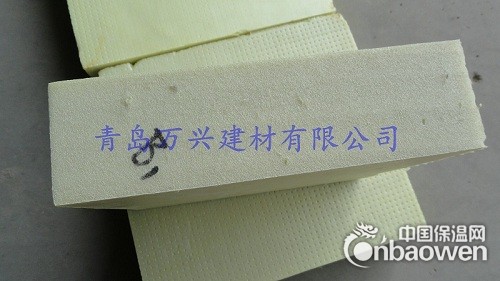 青岛万兴建材有限公司
中国保温网
nbaowen